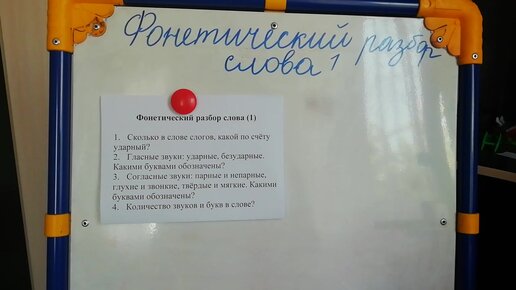 Фонетический разбор
слова 1
Фонетический разбор слова (1)
1. Сколько в слове слогов, какой по счёту
ударный?
2. Гласные звуки: ударные, безударные.
Какими буквами обозначены?
3. Согласные звуки: парные и непарные,
глухие и звонкие, твёрдые и мягкие. Какими
буквами обозначены?
4. Количество звуков и букв в слове?